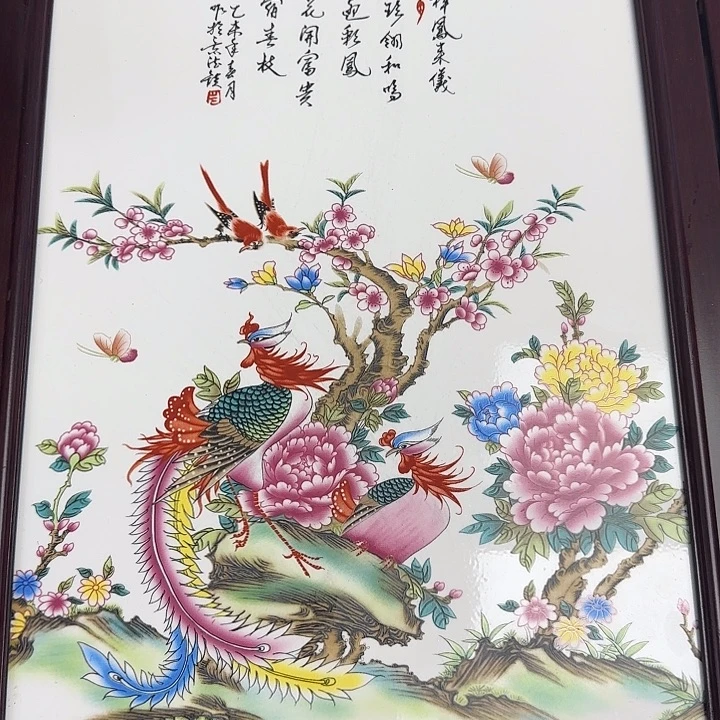 祥鳳来儀
翎和鳴
迎彩鳳
花開富貴
春枝
乙未年春月
於景德鎮